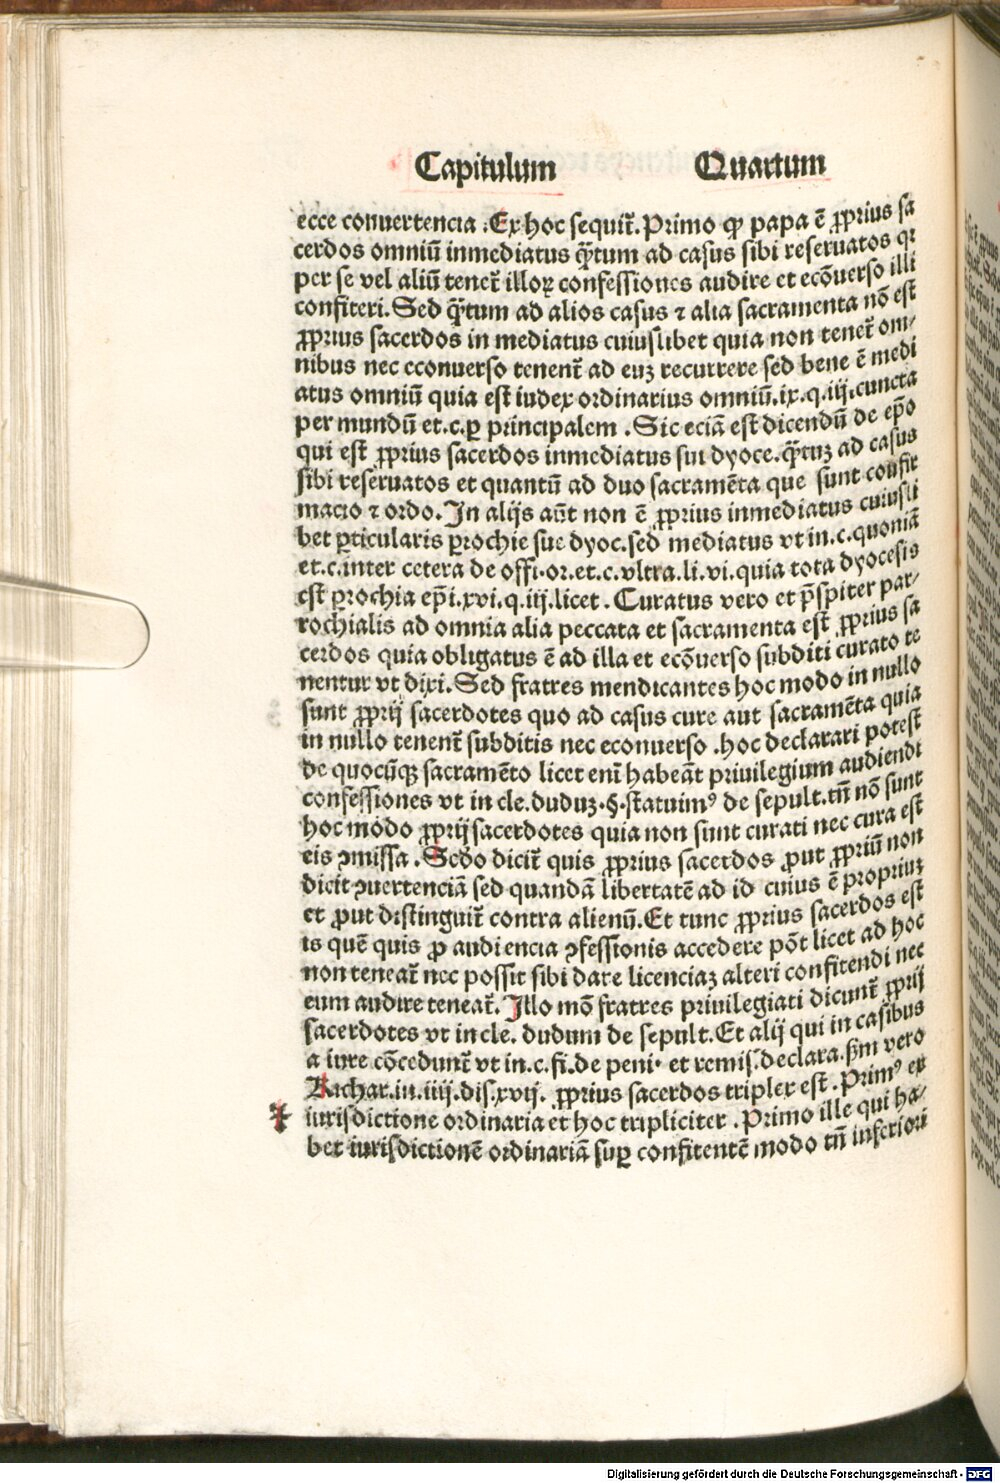 Capitulum Quartum
ecce conuertencia .Ex hoc sequit̃. Primo ꝙ papa ē ꝓprius sa
cerdos omniū inmediatus q̃tum ad casus sibi reseruatos qr
per se vel aliū tenet̃ illoꝝ confessiones audire et ecōuerso illi
confiteri. Sed q̃tum ad alios casus ⁊ alia sacramenta nō est
ꝓprius sacerdos in mediatus cuiuslibet quia non tenet̃ om-
nibus nec econuerso tenent̃ ad euꝫ recurrere sed bene ē medi
atus omniū quia est iudex ordinarius omniū.ix.q.iij.cuncta
per mundū et.c.ꝑ principalem .Sic eciā est dicendū de ep̄o
qui est ꝓprius sacerdos inmediatus sui dyoce.q̃tuꝫ ad casus
sibi reseruatos et quantū ad duo sacramēta que sunt confir
macio ⁊ ordo. In alijs aūt non ē ꝓprius inmediatus cuiusli
bet ꝑticularis ꝑrochie sue dyoc.sed mediatus vt in.c.quoniā
et.c.inter cetera de offi.or.et.c.vltra.li.vi.quia tota dyocesis
est ꝑrochia ep̄i.xvi.q.iij.licet. Curatus vero et p̄spiter par-
rochialis ad omnia alia peccata et sacramenta est ꝓprius sa
cerdos quia obligatus ē ad illa et ecōuerso subditi curato te
nentur vt dixi. Sed fratres mendicantes hoc modo in nullo
sunt ꝓprij sacerdotes quo ad casus cure aut sacramēta quia
in nullo tenent̃ subditis nec econuerso .hoc declarari potest
de quocūqꝫ sacramēto licet eni̅ habeāt priuilegium audiendi
confessiones vt in cle.duduꝫ.§.statuimꝰ de sepult.tn̄ nō sunt
hoc modo ꝓprij sacerdotes quia non sunt curati nec cura est
eis ꝯmissa .Scdo dicit̃ quis ꝓprius sacerdos ꝓut ꝓpriū non
dicit ꝯuertenciā sed quandā libertatē ad id cuius ē propriuꝫ
et ꝓut distinguit̃ contra alienū.Et tunc ꝓprius sacerdos est
is quē quis ꝓ audiencia ꝯfessionis accedere pōt licet ad hoc
non teneat̃ nec possit sibi dare licenciaꝫ alteri confitendi nec
eum audire teneat̃. Illo mō fratres priuilegiati dicunt̃ ꝓprij
sacerdotes vt in cle. dudum de sepult.Et alij qui in casibus
a iure cōcedunt̃ vt in.c.fi.de peni. et remis.declara.ẜm vero
Richar.in.iiij.dis.xvij. ꝓprius sacerdos triplex est .Primꝰ ex
iurisdictione ordinaria et hoc tripliciter .Primo ille qui ha-
bet iurisdictionē ordinariā suꝑ confitentē modo tn̄ inferiori
Digitalisierung gefördert durch die Deutsche Forschungsgemeinschaft - DFG